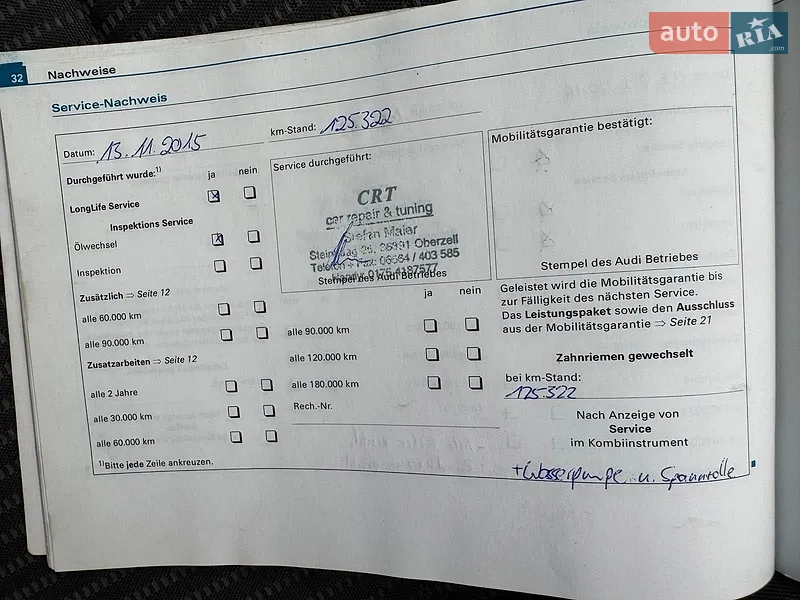 auto RIA .com
32 Nachweise
Service-Nachweis
Datum: 13.11.2015
km-Stand: 125.322
Durchgeführt wurde:¹⁾ ja nein
LongLife Service
Inspektions Service
Ölwechsel
Inspektion
Zusätzlich ⇒ Seite 12
alle 60.000 km
alle 90.000 km
Zusatzarbeiten ⇒ Seite 12
alle 2 Jahre
alle 30.000 km
alle 60.000 km
¹⁾Bitte jede Zeile ankreuzen.
Service durchgeführt:
CRT
car repair & tuning
Stefan Maier
Oberzell
Telefon + Fax: 403 585
Stempel des Audi Betriebes
ja nein
alle 90.000 km
alle 120.000 km
alle 180.000 km
Rech.-Nr.
Mobilitätsgarantie bestätigt:
Stempel des Audi Betriebes
Geleistet wird die Mobilitätsgarantie bis
zur Fälligkeit des nächsten Service.
Das Leistungspaket sowie den Ausschluss
aus der Mobilitätsgarantie ⇒ Seite 21
Zahnriemen gewechselt
bei km-Stand:
125.322
Nach Anzeige von
Service
im Kombiinstrument
+ Wasserpumpe u. Spannrolle